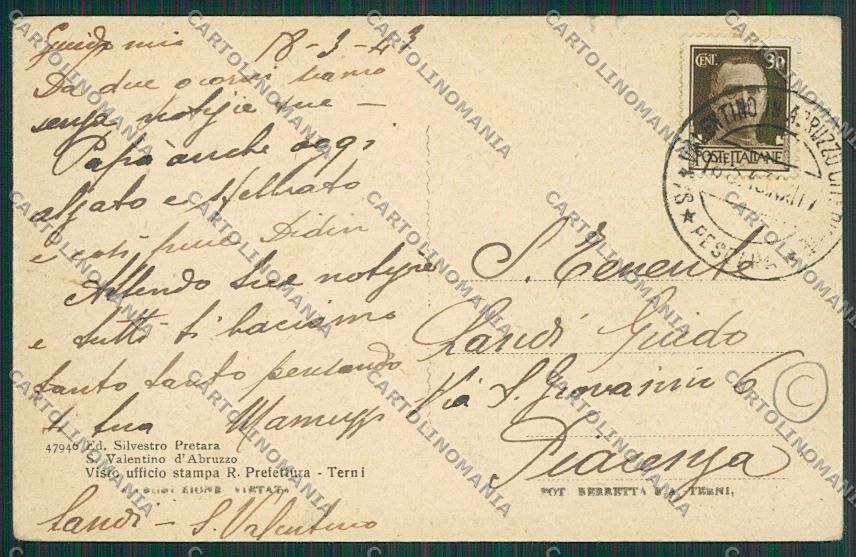 Guido mio 18-3-43
Da due giorni siamo
senza notizie tue —
Papà anche oggi
alzato e sfebbrato
e così pure Didin
Attendo tue notizie
e tutti ti baciamo
tanto tanto pensando
ti tua
47946 Ed. Silvestro Pretara
S. Valentino d'Abruzzo
Visto ufficio stampa R. Prefettura - Terni
RIPRODUZIONE VIETATA
Landi - S. Valentino
CENT. 30
POSTE ITALIANE
S. VALENTINO IN ABRUZZO CITERIORE
PESCARA
S. Tenente
Landi Guido
Via S. Giovanni 6
Piacenza
C
FOT BERRETTA F A - TERNI,
CARTOLINOMANIA